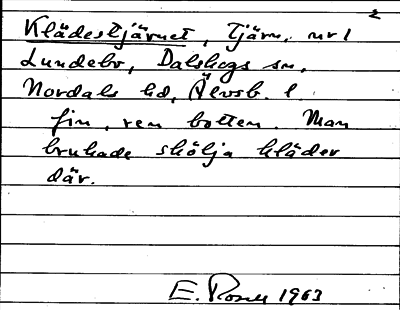 2
Klädestjärnet, Tjärn, nr 1
Lundebo, Dalskogs sn,
Nordals hd, Älvsb. l.
fin, ren botten. Man
brukade skölja kläder
där.
E. 1963